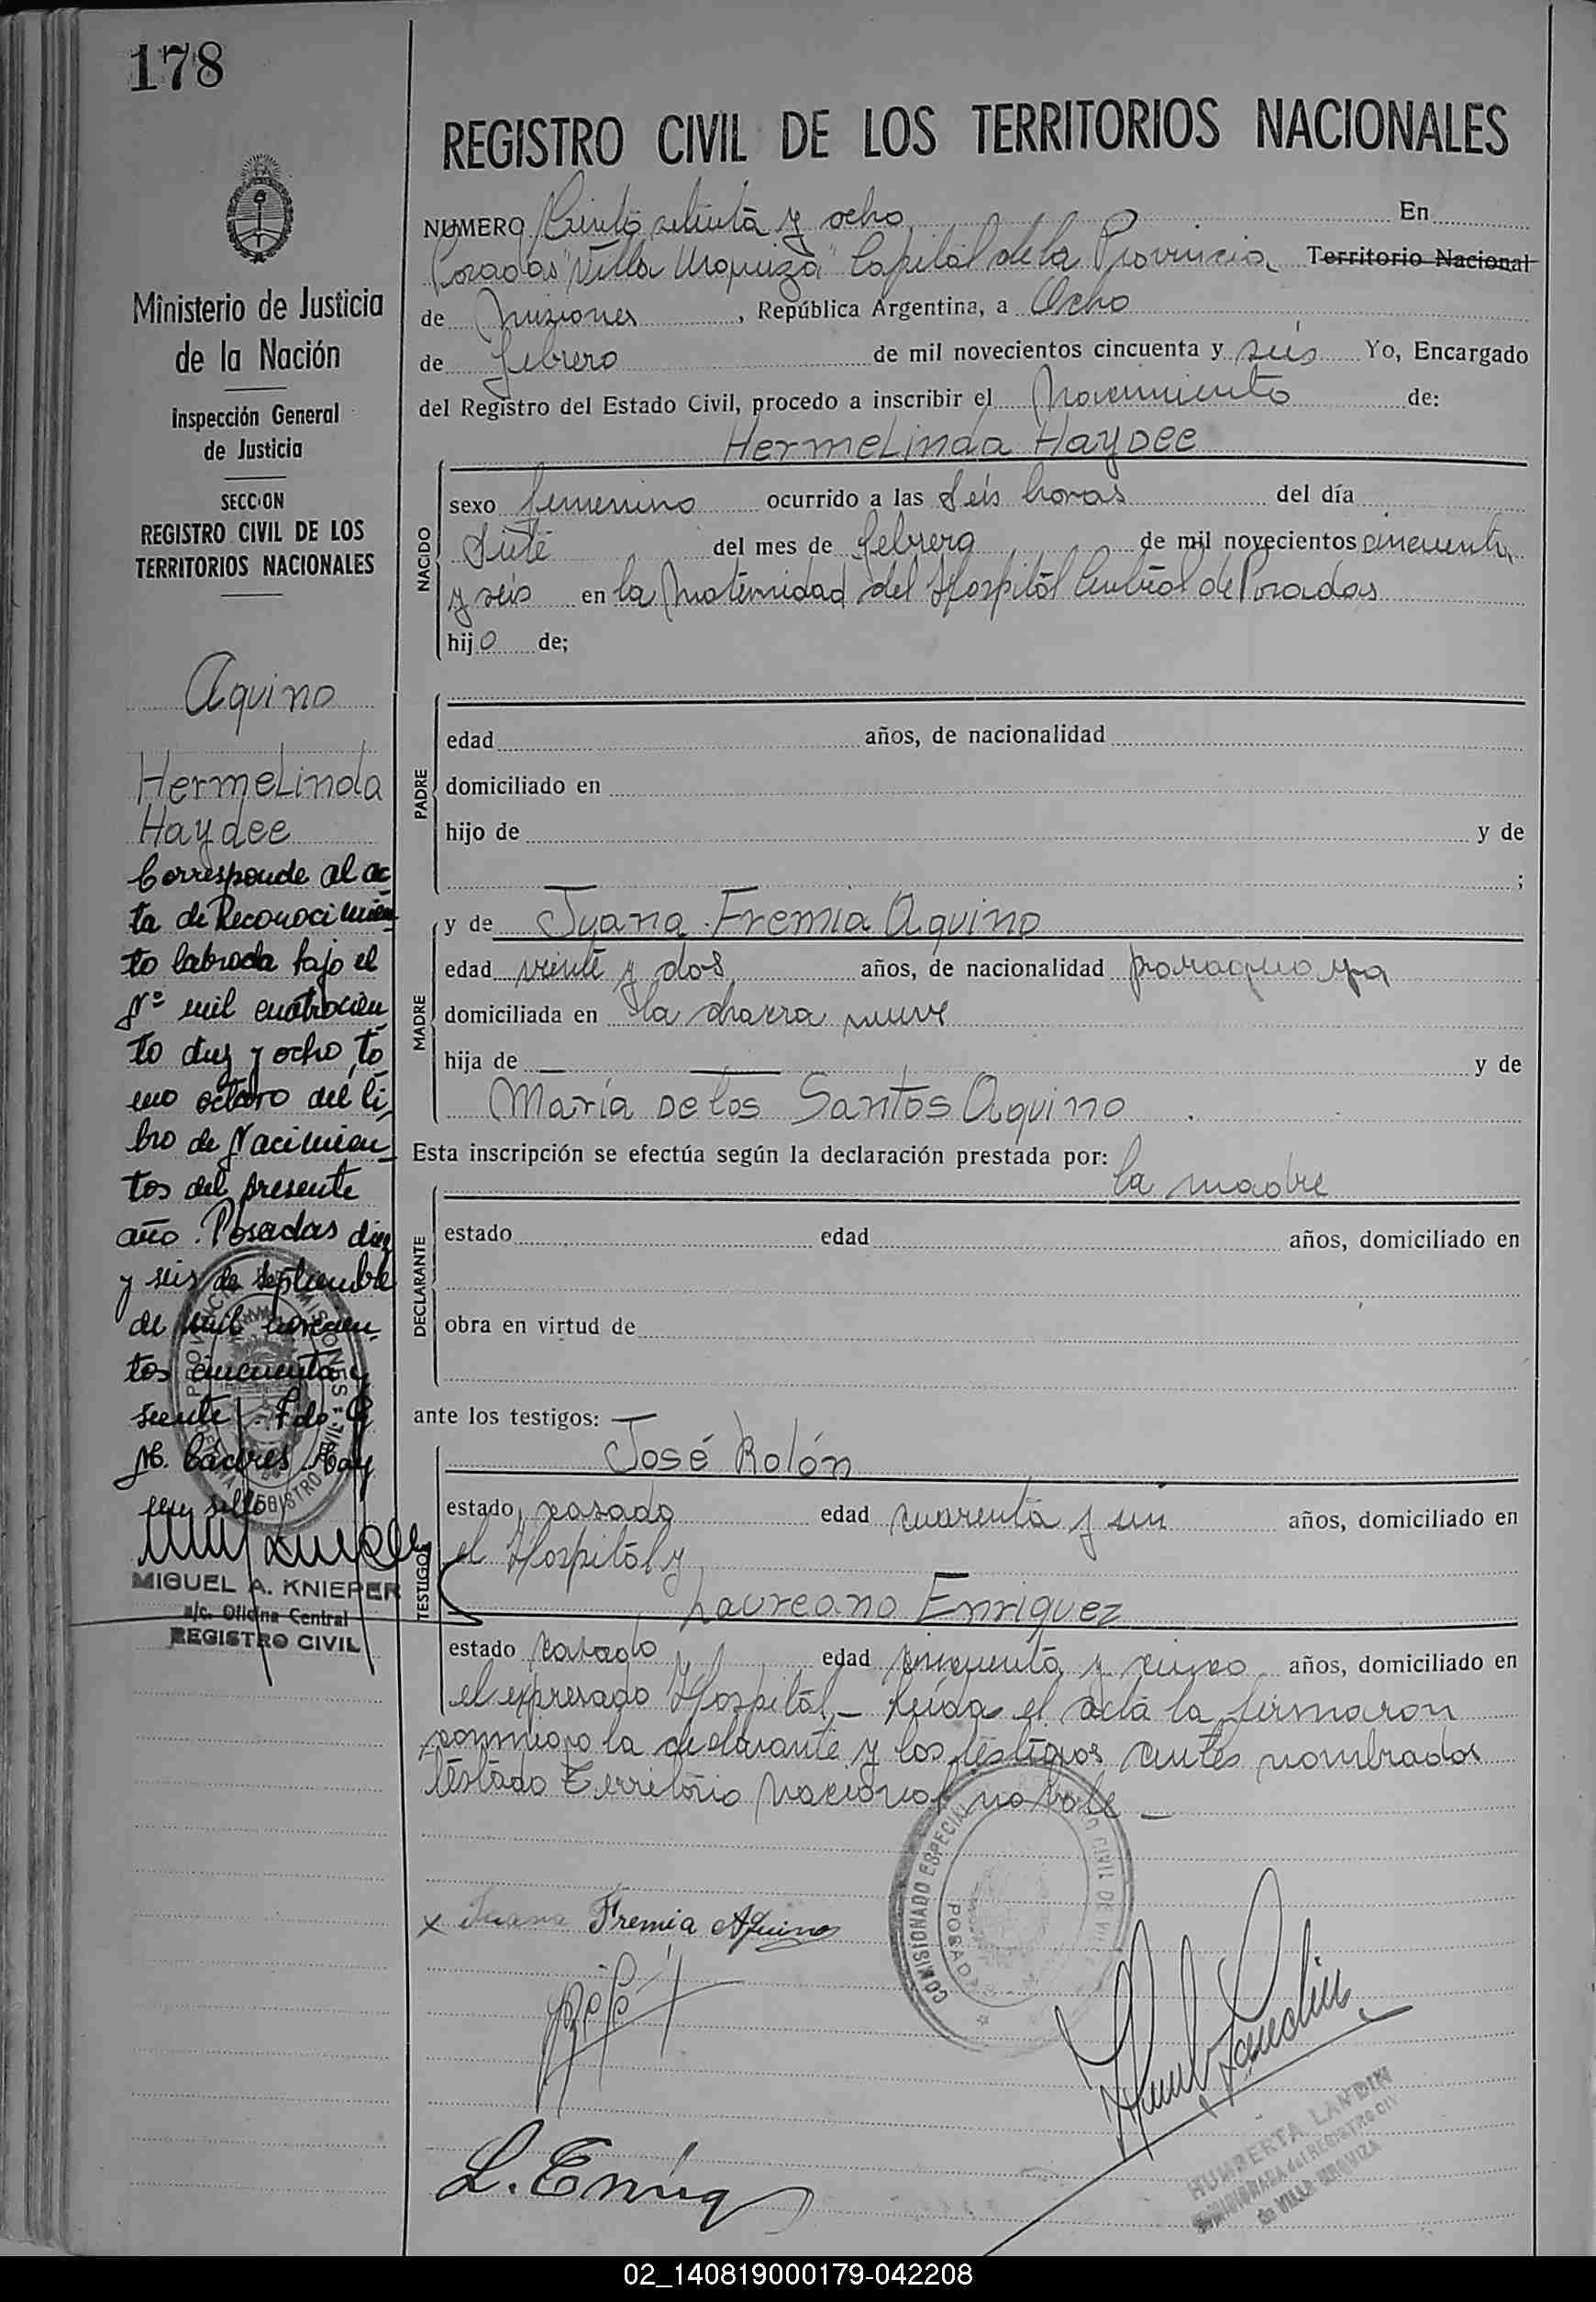 178
Ministerio de Justicia
de la Nación
Inspección General
de Justicia
SECCION
REGISTRO CIVIL DE LOS
TERRITORIOS NACIONALES
Aquino
HermeLinda
Haydee
Corresponde al ac
ta de Reconocimien
to labrada bajo el
Nº mil cuatrocien
to diez y ocho, to
mo octavo del li
bro de Nacimien
tos del presente
año. Posadas diez
y seis de septiembre
de mil novecien
tos cincuenta y
seente. Fdo.
M. Cáceres. Hay
un sello
MIGUEL A. KNIEPER
a/c. Oficina Central
REGISTRO CIVIL
REGISTRO CIVIL DE LOS TERRITORIOS NACIONALES
NUMERO Ciento setenta y ocho En
Posadas "Villa Urquiza" Capital de la Provincia Territorio Nacional
de Misiones, República Argentina, a Ocho
de febrero de mil novecientos cincuenta y seis Yo, Encargado
del Registro del Estado Civil, procedo a inscribir el Nacimiento de:
HermeLinda Haydee
NACIDO
sexo femenino ocurrido a las Seis horas del día
Siete del mes de febrero de mil novecientos cincuenta
y seis en la Maternidad del Hospital Central de Posadas
hijo de;
PADRE
edad años, de nacionalidad
domiciliado en
hijo de y de
;
MADRE
y de Juana Fremia Aquino
edad veinte y dos años, de nacionalidad paraguaya
domiciliada en la chacra nueve
hija de — y de
María De Los Santos Aquino
Esta inscripción se efectúa según la declaración prestada por:
la madre
DECLARANTE
estado edad años, domiciliado en
obra en virtud de
ante los testigos:
TESTIGOS
José Rolón
estado casado edad cuarenta y un años, domiciliado en
el Hospital y
Laureano Enriquez
estado casado edad cincuenta y cinco años, domiciliado en
el expresado Hospital.- Leída el acta la firmaron
conmigo la declarante y los testigos antes nombrados
testado Territorio Nacional no vale —
COMISIONADO ESPECIAL
POSADAS
x Juana Fremia Aquino
L. Enriq
HUMBERTA LANDIN
del REGISTRO CIV
de VILLA URQUIZA
02_140819000179-042208